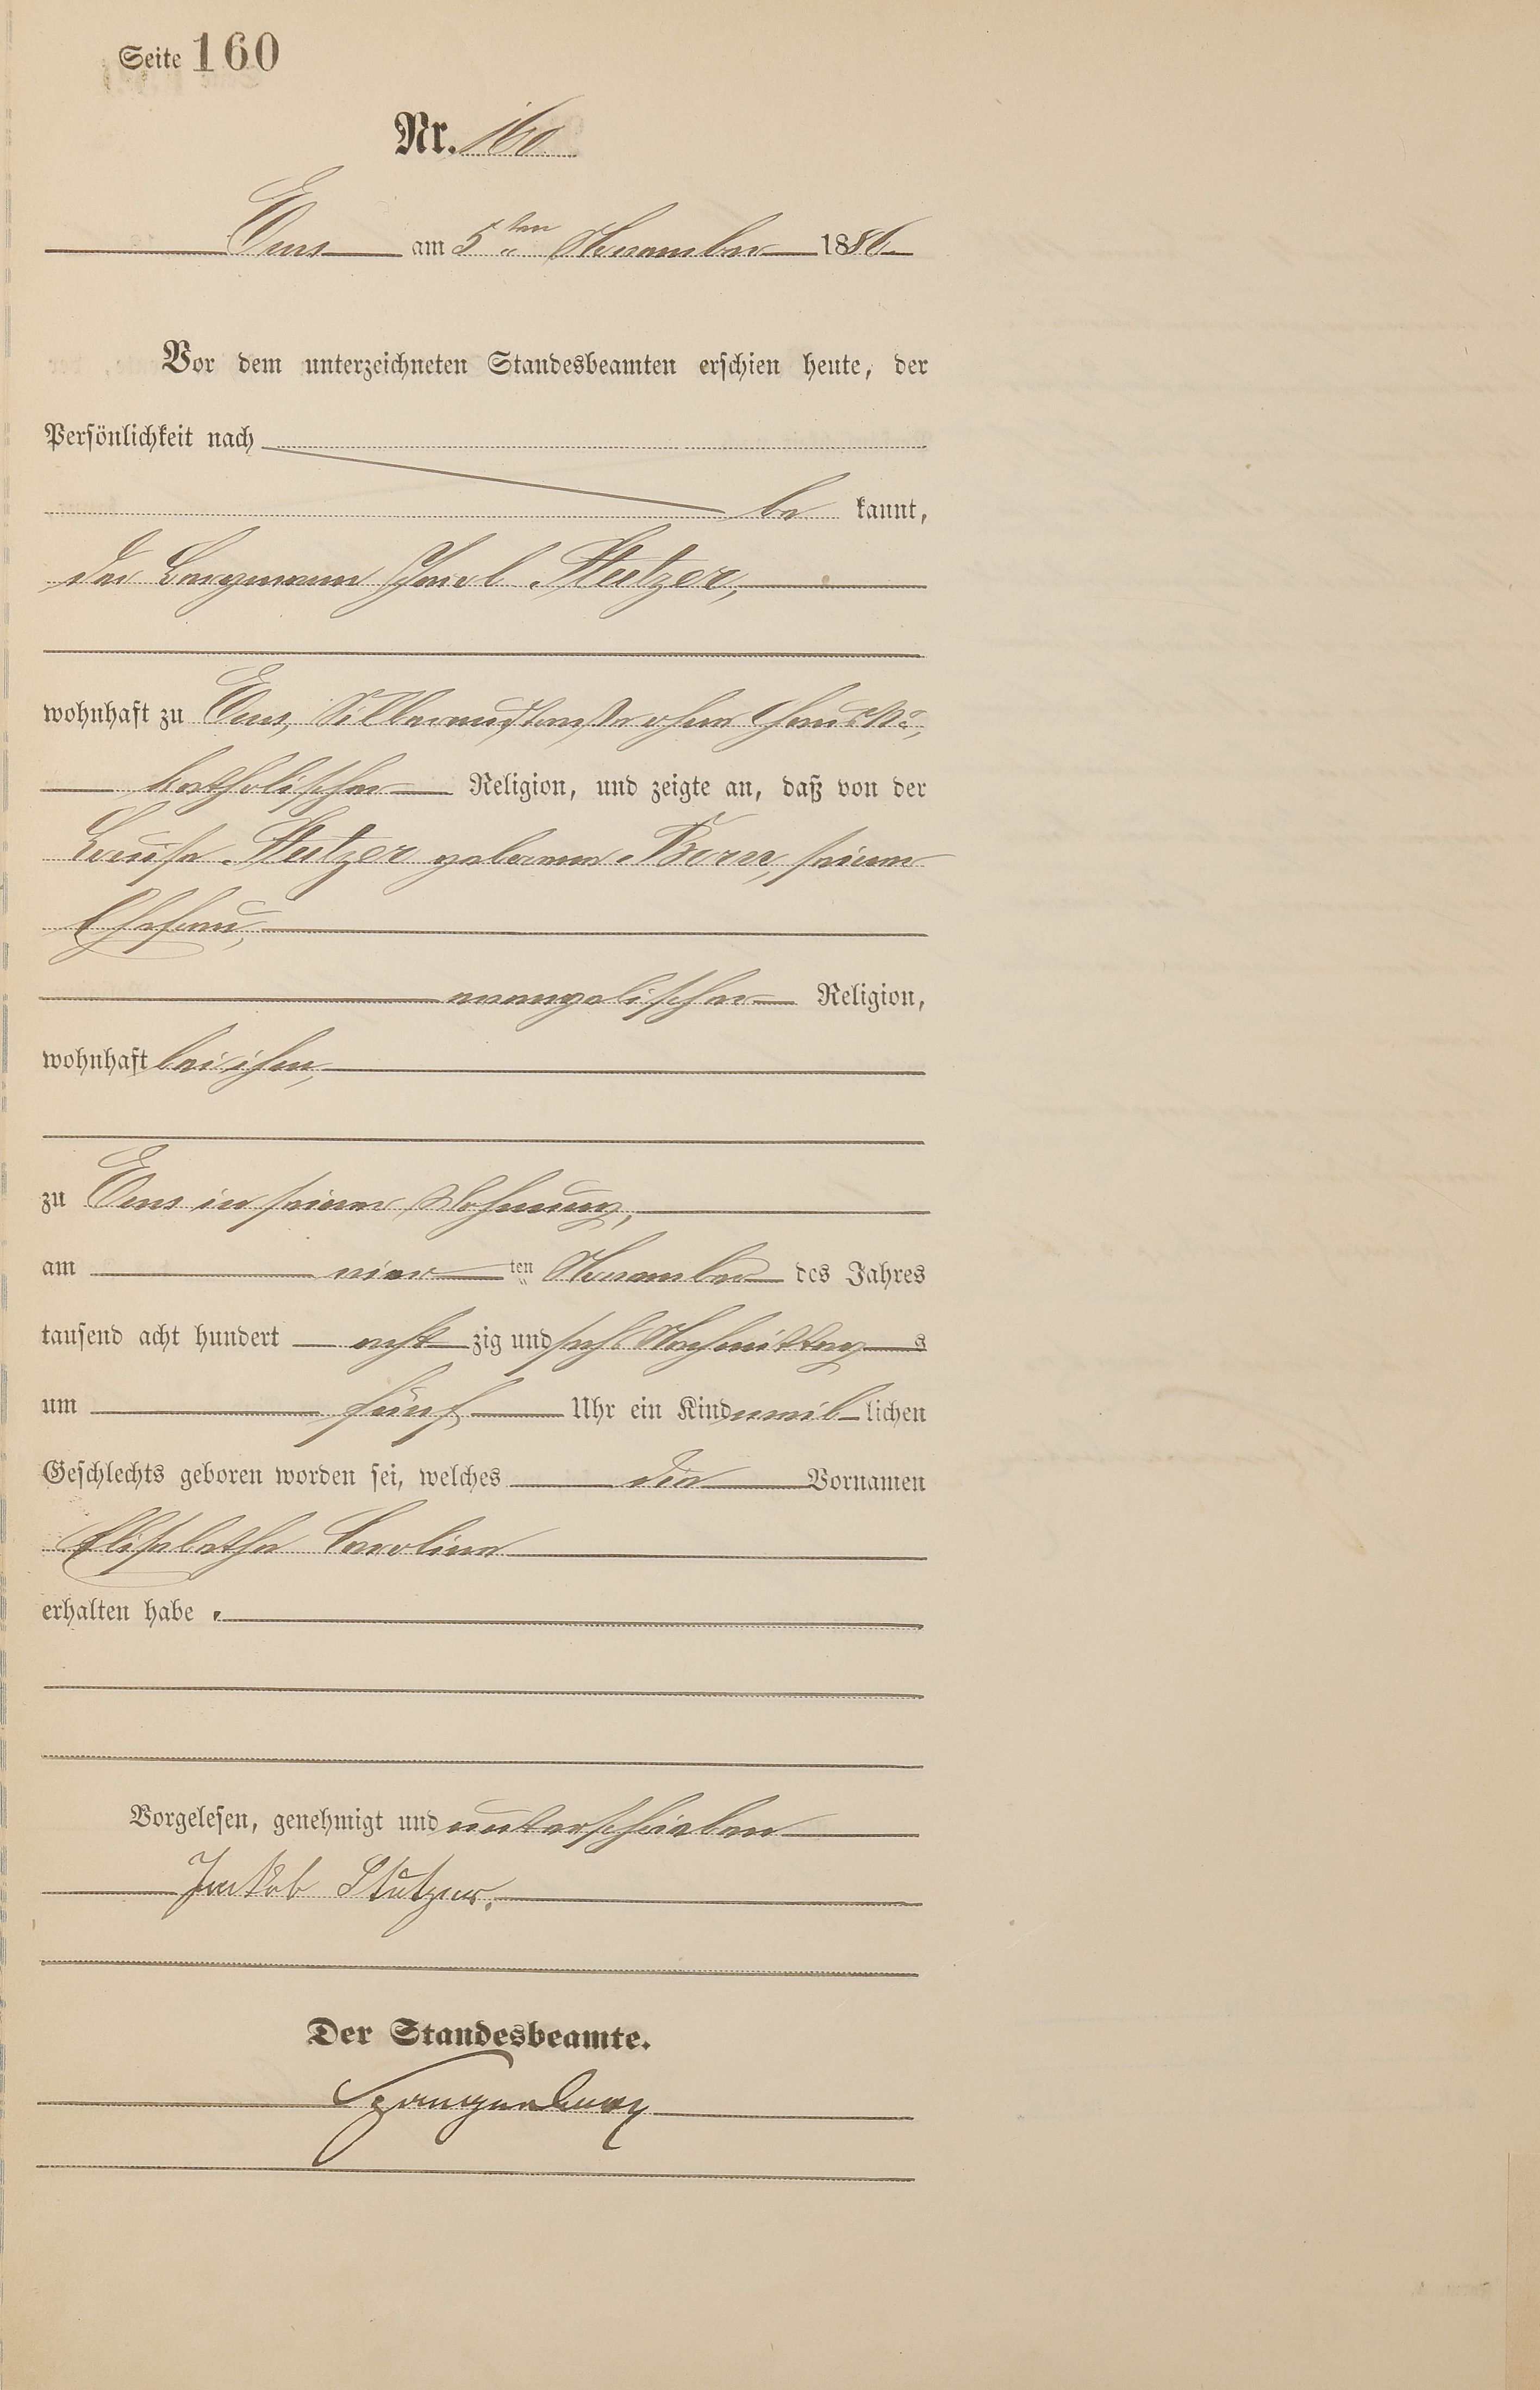 Seite 160
Nr. 160
Ems am 5ten November 1886
Vor dem unterzeichneten Standesbeamten erschien heute, der
Persönlichkeit nach
be kannt,
der Bergmann Stutzer,
wohnhaft zu Ems, Silberaustraße ohne Haus No,
katholischer Religion, und zeigte an, daß von der
Louise Stutzer geborene Born, seiner
Ehefrau,
evangelischer Religion,
wohnhaft bei ihm,
zu Ems in seiner Wohnung,
am vier ten November des Jahres
tausend acht hundert acht zig und sechs Nachmittag s
um fünf Uhr ein Kind weib lichen
Geschlechts geboren worden sei, welches die Vornamen
Elisabetha Carolina
erhalten habe.
Vorgelesen, genehmigt und unterschrieben
Jackob Stutzer.
Der Standesbeamte.
Spangenberg